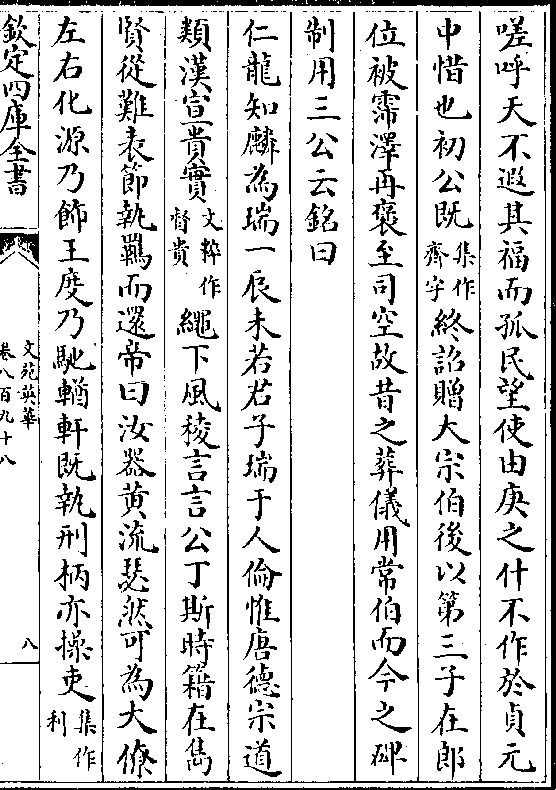 嗟呼天不遐其福而孤民望使由庚之什不作於貞元
中惜也初公既集作齊字終詔贈大宗伯後以第三子在郎
位被霈澤再褒至司空故昔之葬儀用常伯而今之碑
制用三公云銘曰
仁龍知麟為瑞一辰未若君子瑞于人倫惟唐德宗道
類漢宣貴實文粹作督責繩下風稜言言公丁斯時籍在雋
賢從難表節執羈而還帝曰汝器黃流瑟然可為大僚
左右化源乃飾王度乃馳輶軒既執刑柄亦操吏集作利
欽定四庫全書
文苑英華
卷八百九十八
八